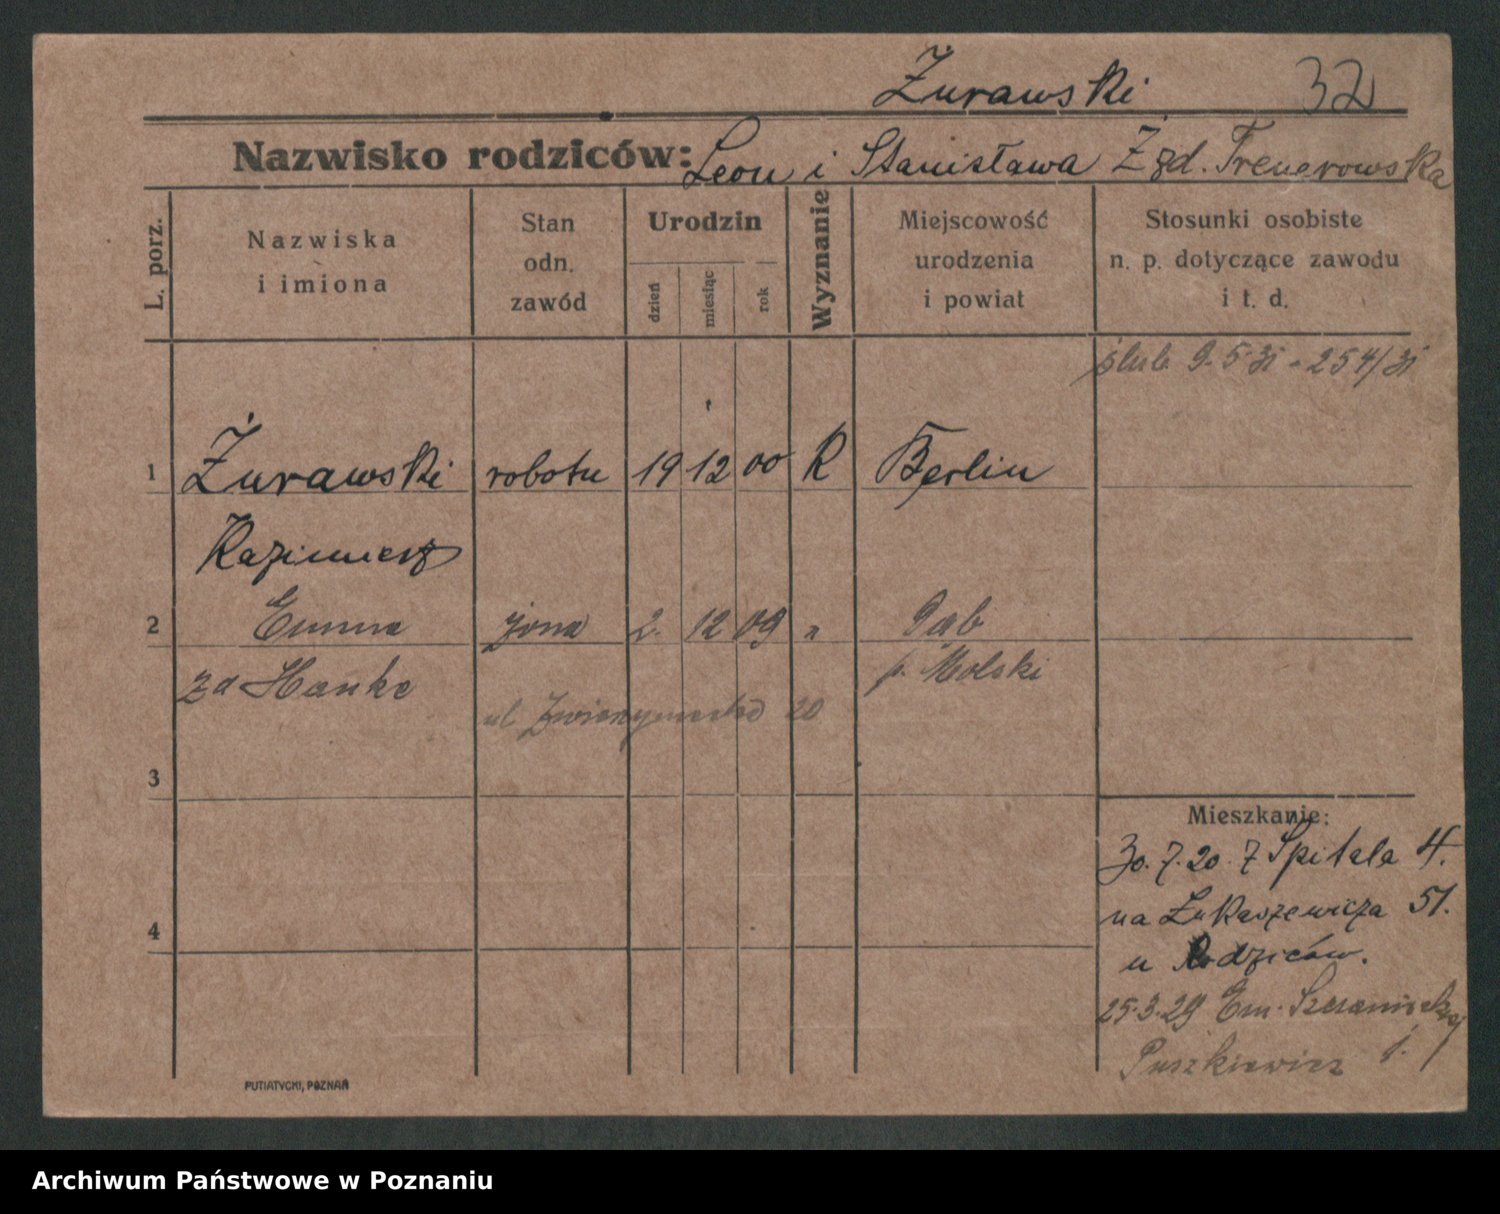 Żurawski 32
Nazwisko rodziców: Leon i Stanisława Zgd. Trenerowska
L. porz.
Nazwiska
i imiona
Stan
odn.
zawód
Urodzin
dzień
miesiąc
rok
Wyznanie
Miejscowość
urodzenia
i powiat
Stosunki osobiste
n. p. dotyczące zawodu
i t. d.
ślub 9.5.31 - 254/31
1 Żurawski robotn 19 12 00 R Berlin
Kazimierz
2 Emma żona 2. 12 09 " Gab
za Hanke p. Wolski
ul 20
3
Mieszkanie:
30.7.20. Z Spitala 4.
na Łukaszewicza 51.
4
u Rodziców.
25.3.29 Em.
Puszkiewicz j.
PUTIATYCKI, POZNAŃ
Archiwum Państwowe w Poznaniu